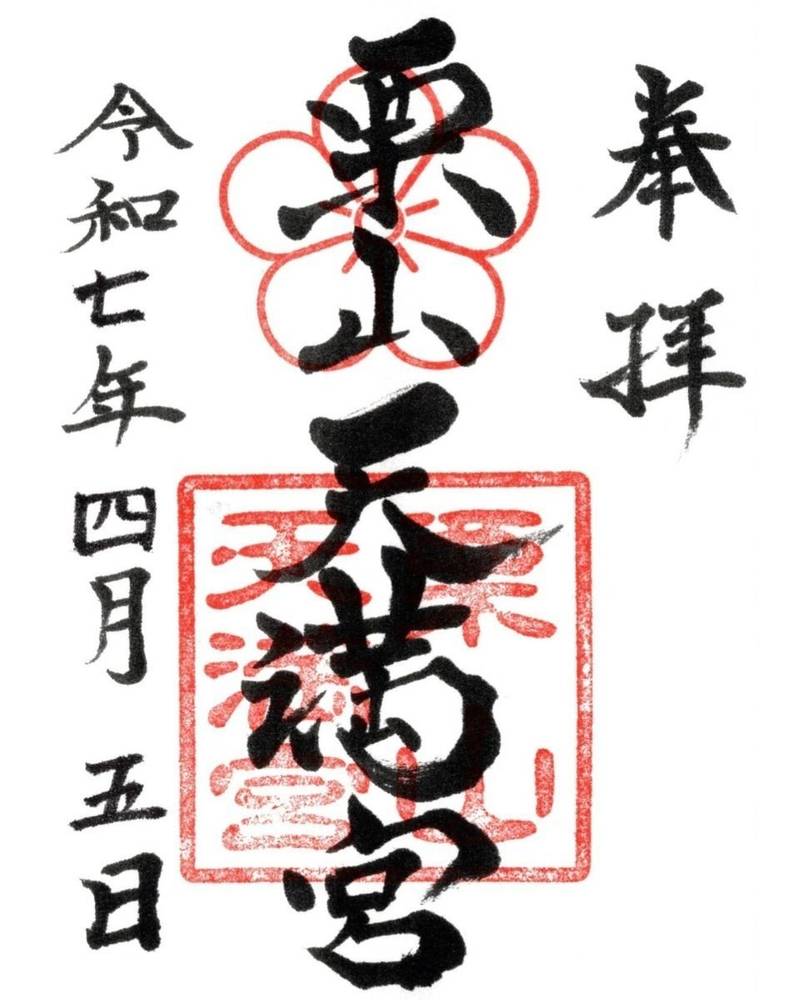 奉拝
栗山天満宮
栗山
天満宮
令和七年四月五日